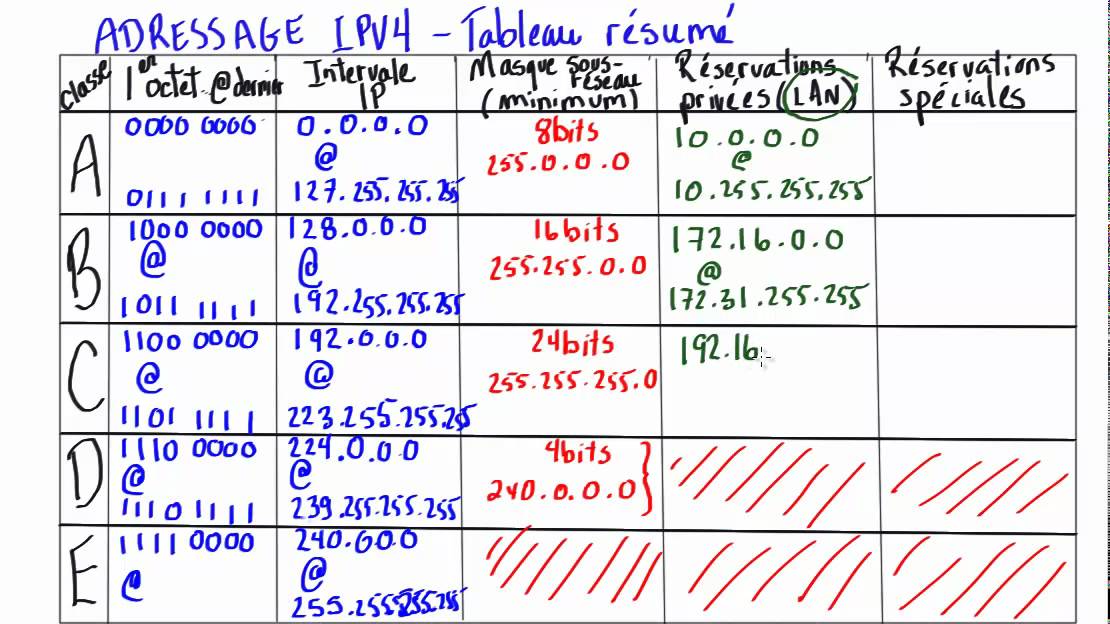 ADRESSAGE IPV4 - Tableau résumé
classe
1er octet @ dernier
Intervale
IP
Masque sous-réseau
(minimum)
Réservations
privées (LAN)
Réservations
spéciales
A
0000 0000
0111 1111
0.0.0.0
@
127.255.255.255
8bits
255.0.0.0
10.0.0.0
@
10.255.255.255
B
1000 0000
@
1011 1111
128.0.0.0
@
192.255.255.255
16bits
255.255.0.0
172.16.0.0
@
172.31.255.255
C
1100 0000
@
1101 1111
192.0.0.0
@
223.255.255.255
24bits
255.255.255.0
192.16
D
1110 0000
@
1110 1111
224.0.0.0
@
239.255.255.255
4bits
240.0.0.0
E
1111 0000
@
240.0.0.0
@
255.255.255.255